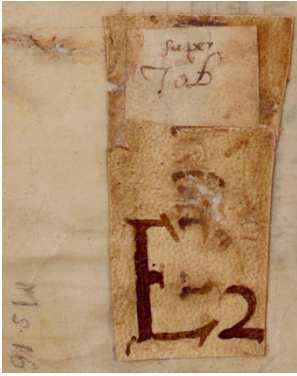 super
Job
E 2
M.S. 16